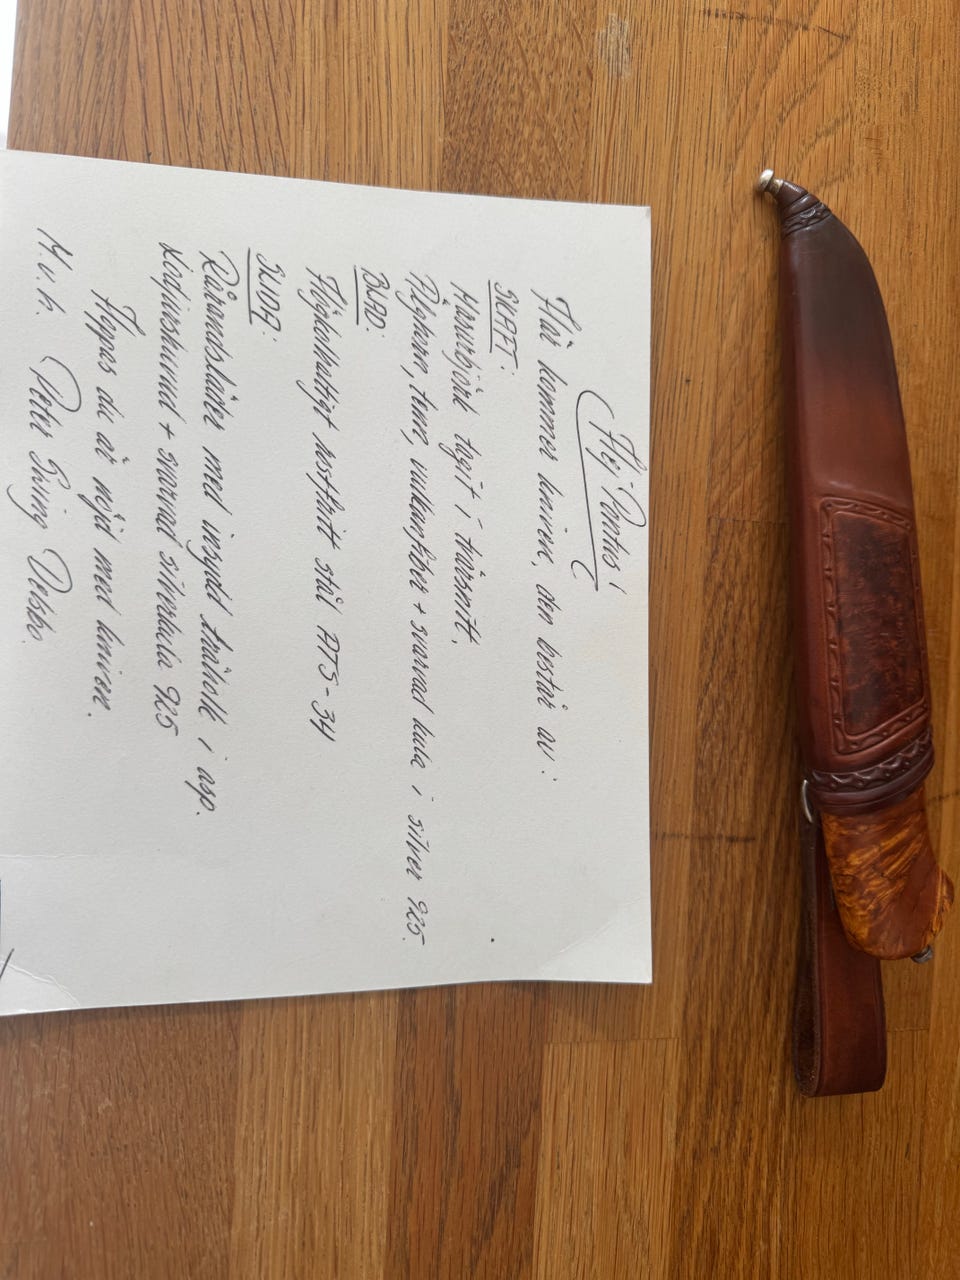 Hej Pontus!
Här kommer kniven, den består av:
SKAFT:
Masurbjörk tagit i tvärsnitt.
Älghorn, tenn, vulkanfiber + svarvad kula i silver 925.
BLAD:
Höghållfast rostfritt stål ATS-34
SLIDA:
Rårandsläder med insydd träholk i asp.
Lodjursskinn + svarvad silverkula 925
Hoppas du är nöjd med kniven.
M.v.h. Peter